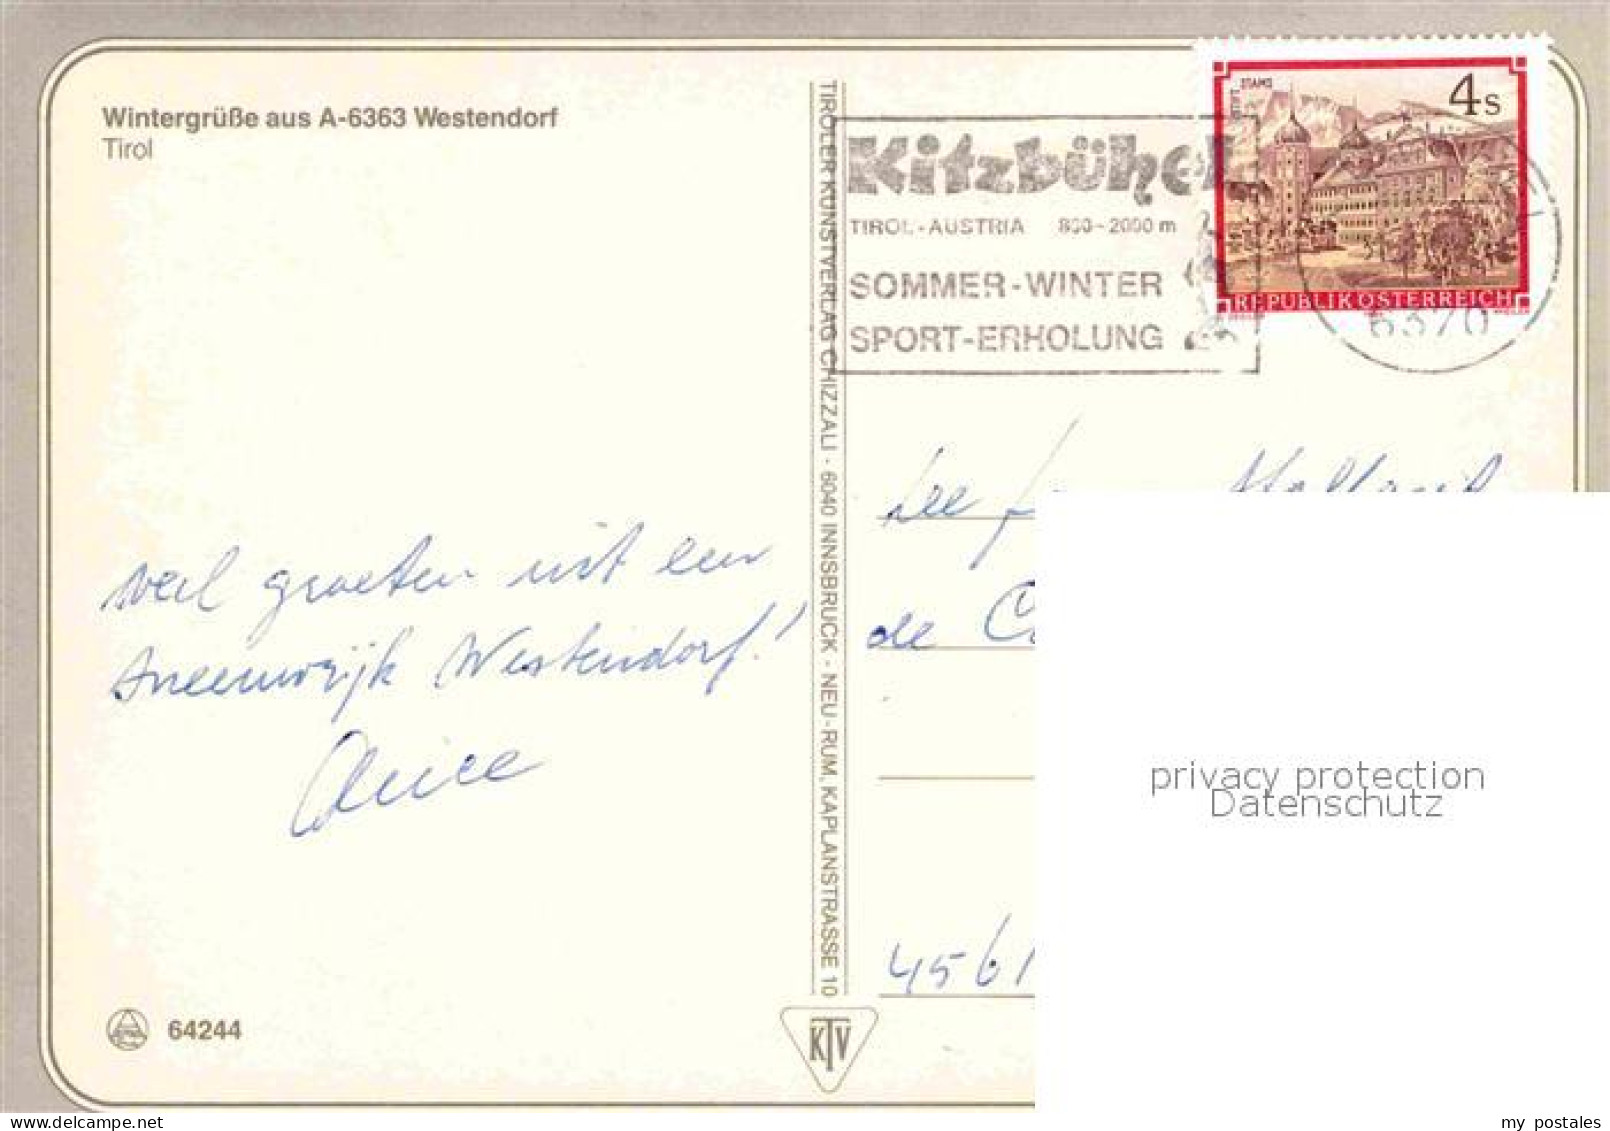 Wintergrüße aus A-6363 Westendorf
Tirol
veel groeten uit een
sneeuwrijk Westendorf!
64244
TIROLER KUNSTVERLAG CHIZZALI · 6040 INNSBRUCK - NEU-RUM, KAPLANSTRASSE 10
KTV
Kitzbühel
TIROL-AUSTRIA 800-2000 m
SOMMER-WINTER
SPORT-ERHOLUNG
STIFT STAMS
4 S
REPUBLIK ÖSTERREICH
6370
Holland
de
4561
privacy protection
Datenschutz
my postales